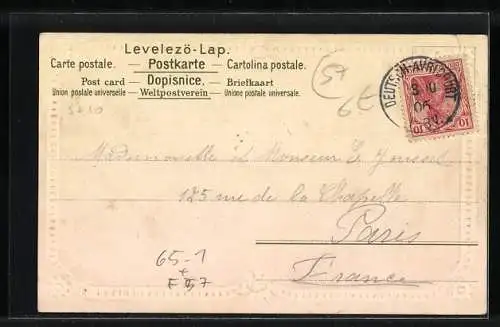 Levelezö-Lap.
Carte postale. Postkarte Cartolina postale.
Post card Dopisnice. Briefkaart
Union postale universelle Weltpostverein Unione postale universale.
57
6€
DEUTSCH-AVRICOURT
05
10 10
Mademoiselle et Monsieur
125 rue de la Chapelle
Paris
France
65-1
+